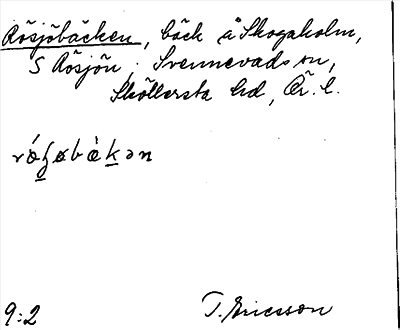 Rösjöbäcken, bäck å Skogaholm,
S Rösjön, Svennevads sn,
Sköllersta hd, Ör. l.
rǿɧøbæ̀kən
9:2 T. Ericsson